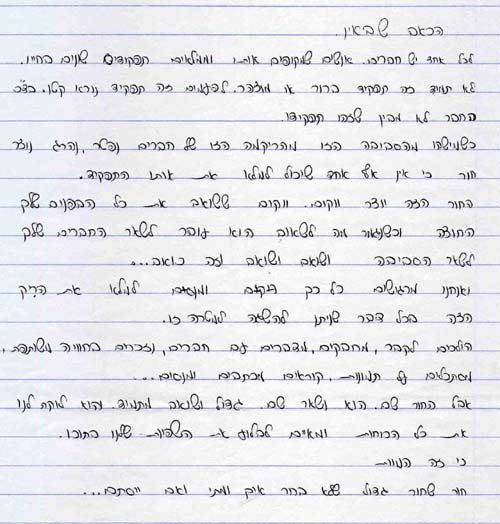 הכאב שבאין.
לכל אחד יש חברים. אנשים שמקיפים אותו וממלאים תפקידים שונים בחייו.
לא תמיד זה תפקיד ברור או מוצהר. לפעמים זה תפקיד נורא קטן. בד"כ
החבר לא מבין שזהו תפקידו.
כשמישהו מהסביבה הזו מהריקמה הזו של חברים נפטר, נהרג נוצר
חור כי אין אף אחד שיכול למלא את אותו התפקיד.
החור הזה יוצר ווקום. ווקום ששואב את כל הבפנים שלך
החוצה וכשנגמר מה לשאוב הוא עובר לשאר החברים שלך
לשאר הסביבה ושואב ושואב וזה כואב...
ואנחנו מרגישים כל כך ריקים ומנסים למלא את הריק
הזה בכל דבר שניתן להשגה למטרה זו.
הולכים לקבר, מחבקים, מדברים עם חברים, נזכרים בחוויה משותפת,
מסתכלים על תמונות, קוראים מכתבים ומנסים...
אבל החור שם. הוא נשאר שם. גדול ושואב מתמיד. והוא לוקח לנו
את כל הכוחות ומאיים לבלוע את השפיות שלנו בתוכו.
כי זה המוות
חור שחור גדול שלא ברור איך ומתי ואם ייסתם...